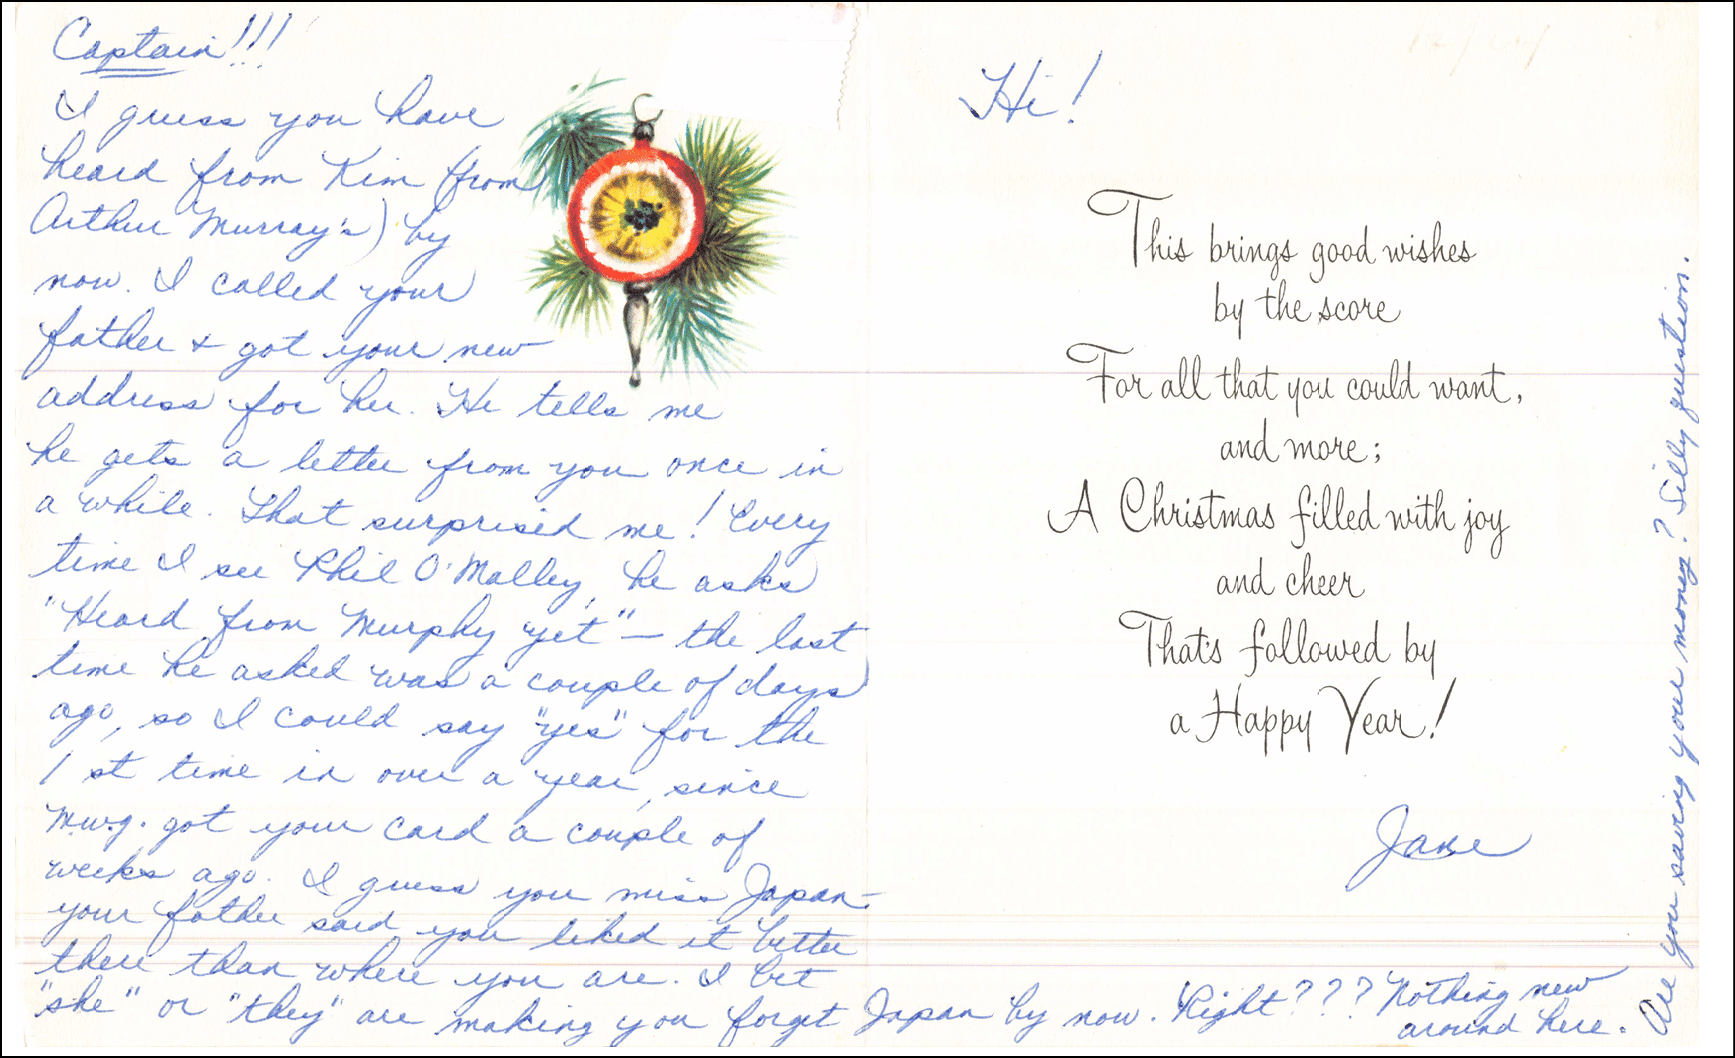 Captain!!!
I guess you have
heard from Kim (from
Arthur Murray's) by
now. I called your
father & got your new
address for her. He tells me
he gets a letter from you once in
a while. That surprised me! Every
time I see Phil O'Malley, he asks
"Heard from Murphy yet" — the last
time he asked was a couple of days
ago, so I could say "yes" for the
1st time in over a year, since
got your card a couple of
weeks ago. I guess you miss Japan-
your father said you liked it better
there than where you are. I bet
"she" or "they" are making you forget Japan by now. Right??? Nothing new
around here.
Hi!
This brings good wishes
by the score
For all that you could want,
and more;
A Christmas filled with joy
and cheer
That's followed by
a Happy Year!
Jane
Are you saving your money? Silly question.